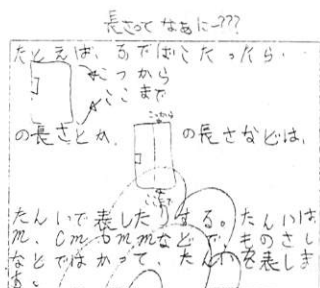 長さって なあに-???
たとえば、ふでばこだったら.
こっから
ここまで
の長さとか、
こっから
の長さなどは、
ここまで
たんいで表したりする。たんいは
m、cm、mmなどで、ものさし
などではかって、たんいを表しま
す。